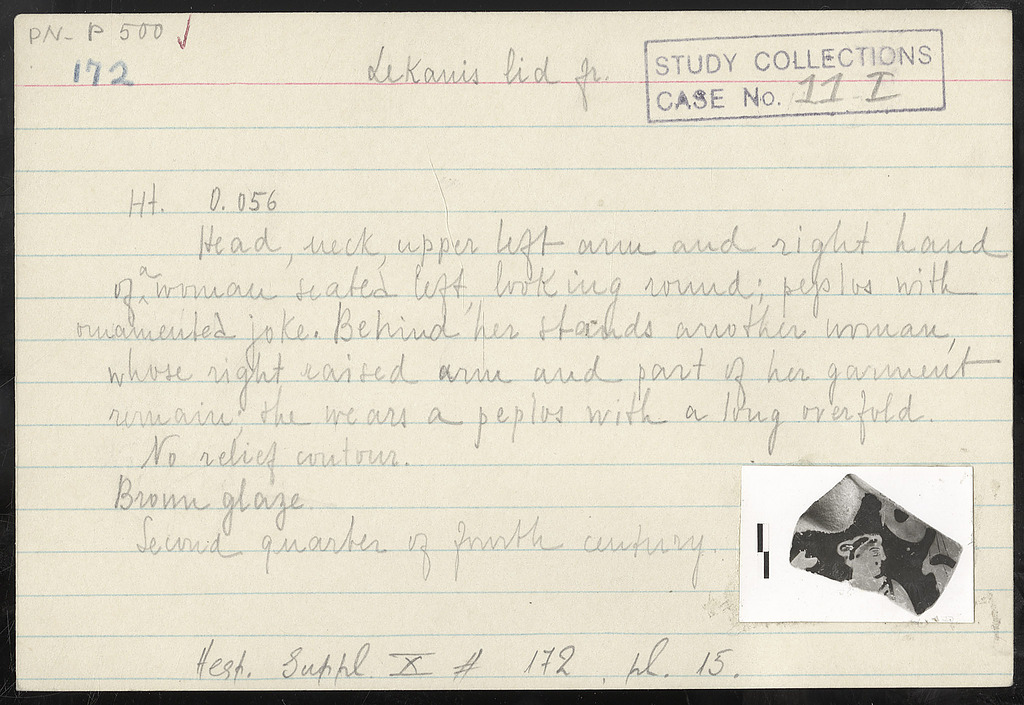 PN- P 500 ✓
172
Lekanis lid fr.
STUDY COLLECTIONS
CASE No. 11 I
Ht. 0.056
Head, neck, upper left arm and right hand
of a woman seated left, looking round; peplos with
ornamented joke. Behind her stands another woman,
whose right raised arm and part of her garment
remain; she wears a peplos with a long overfold.
No relief contour.
Brown glaze.
Second quarter of fourth century.
Hesp. Suppl. X # 172, pl. 15.